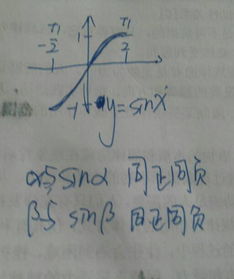 -π/2 1 π/2
-1 y=sinx
α与sinα 同正同负
β与sinβ 同正同负